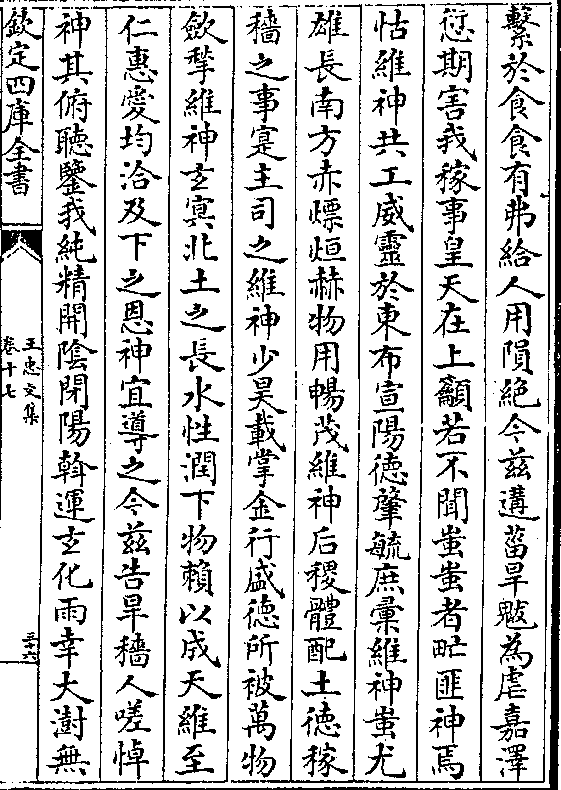 繫於食食有弗給人用隕絶今茲遘菑旱魃為虐嘉澤
愆期害我稼事皇天在上籲若不聞蚩蚩者甿匪神焉
怙維神共工威靈於東布宣陽德肇毓庶彚維神蚩尤
雄長南方赤熛烜赫物用暢茂維神后稷體配土德稼
穡之事寔主司之維神少昊載掌金行盛德所被萬物
斂揫維神玄冥北土之長水性潤下物賴以成天維至
仁惠愛均洽及下之恩神宜導之今茲告旱穡人嗟悼
神其俯聽鑒我純精開陰閉陽斡運玄化雨幸大澍無
欽定四庫全書
王忠文集
卷十七
三十六